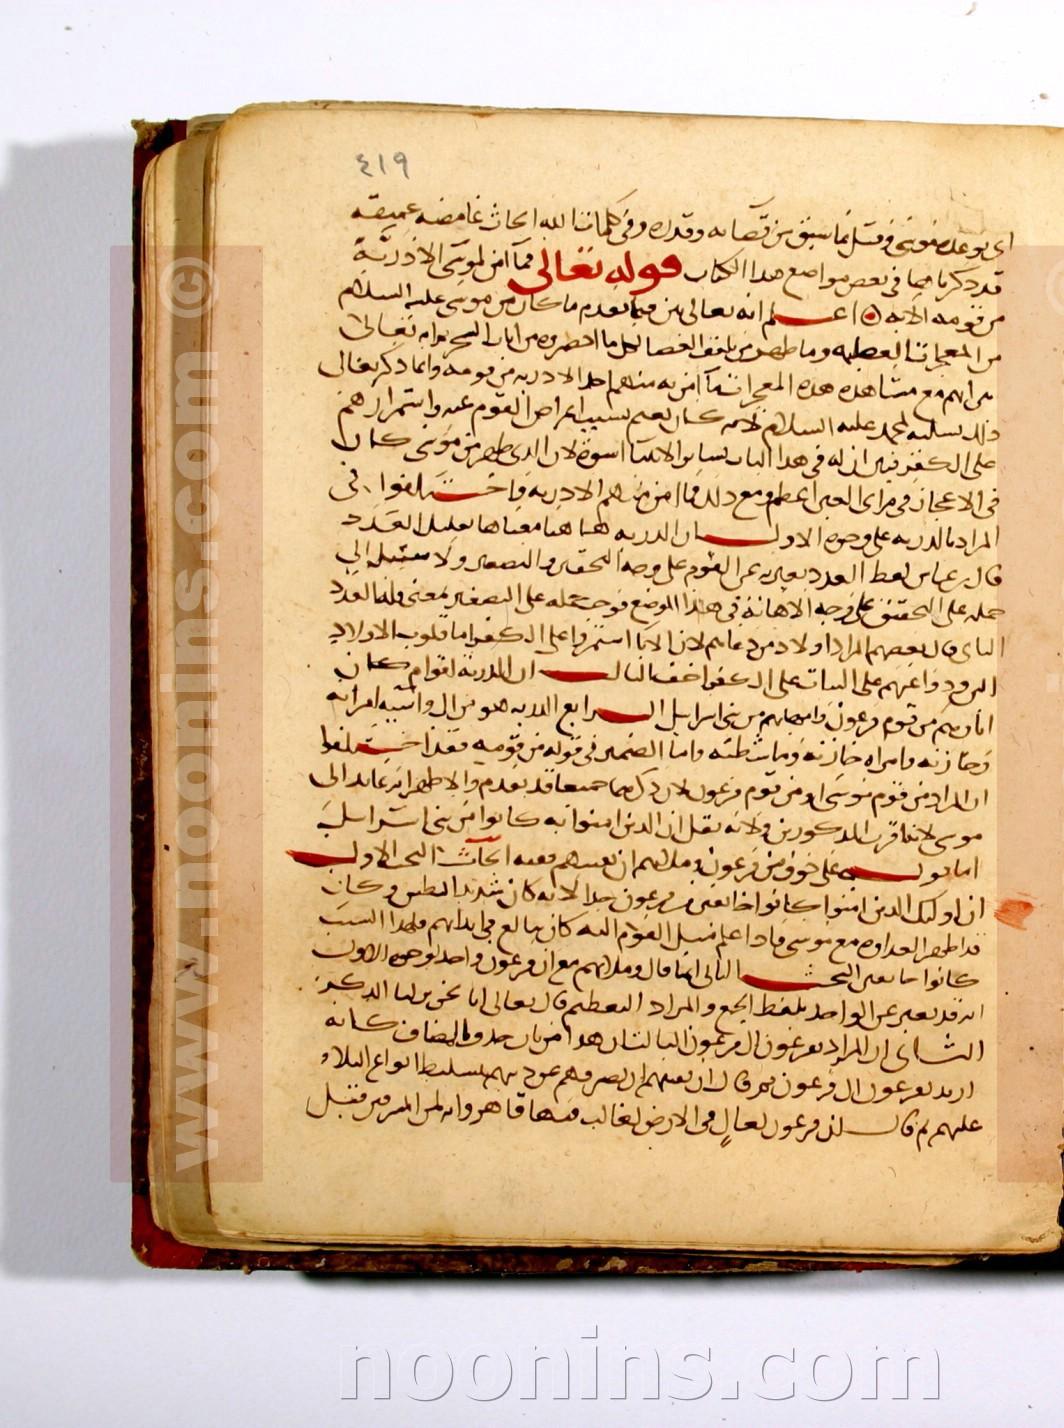 ٤١٩
اى بوعده موسى وقيل بما سبق من قضائه وقدره وفى كلمات الله ابحاث غامضة عميقة
قد ذكرناها فى بعض مواضع هذا الكتاب قوله تعالى فما آمن لموسى الا ذرية
من قومه الاية اعلم انه تعالى بين فيما تقدم ما كان من موسى عليه السلام
من المعجزات العظيمة وما ظهر من تلقف العصا لكل ما احضروه من الات السحر ثم انه تعالى
بين انهم مع مشاهدة هذه المعجزات ما آمن به منهم الا ذرية من قومه وانما ذكر تعالى
ذلك تسلية لمحمد عليه السلام لانه كان يغتم بسبب اعراض القوم عنه واستمرارهم
على الكفر فبين ان له فى هذا الباب بسائر الانبيآ اسوة لان الذى ظهر من موسى كان
فى الاعجاز فى مرأى العين اعظم ومع ذلك فما آمن منهم الا ذرية واختلفوا فى
المراد بالذرية على وجوه الاول ان الذرية هاهنا معناها تقليل العدد
قال ابن عباس لفظ العدد يعبر به عن القوم على وجه التحقير والتصغير ولا سبيل الى
حمله على التحقير على وجه الاهانة فى هذا الموضع فوجب حمله على التصغير بمعنى قلة العدد
الثانى قال بعضهم المراد اولاد من دعاهم لان الآبا استمروا على الكفر اما قلوب الاولاد
او دواعيهم على الثبات على الكفر اخف الثالث ان الذرية اقوام كان
اباؤهم من قوم فرعون وامهاتهم من بنى اسرايل الرابع الذرية هو من ال فرعون اسية امراته
وخازنه وامراة خازنه وماشطته واما الضمير فى قوله من قومه فقد اختلفوا
ان المراد من قوم موسى او من قوم فرعون لان ذكرهما جميعا قد تقدم والاظهر انه عائد الى
موسى لانه اقرب المذكورين ولانه نقل ان الذين امنوا به كانوا من بنى اسرايل
اما قوله على خوف من فرعون وملائهم ان يفتنهم ففيه ابحاث البحث الاول
ان اولئك الذين امنوا كانوا خائفين من فرعون جدا لانه كان شديد البطش وكان
قد اظهر العداوة مع موسى فاذا علم ميل القوم اليه كان يبالغ فى ايذائهم فلهذا السبب
كانوا خائفين البحث الثانى انما قال وملائهم مع ان فرعون واحد لوجوه الاول
انه قد يعبر عن الواحد بلفظ الجمع والمراد التعظيم قال تعالى انا نحن نزلنا الذكر
الثانى ان المراد بفرعون ال فرعون الثالث ان هذا من باب حذف المضاف كانه
اريد بفرعون ال فرعون ثم قال ان يفتنهم اى يصرفهم عن دينهم بتسليط انواع البلاء
عليهم ثم قال وان فرعون لعال فى الارض لغالب فيها قاهر وانه لمن المسرفين قيل
www.noonins.com ©
noonins.com